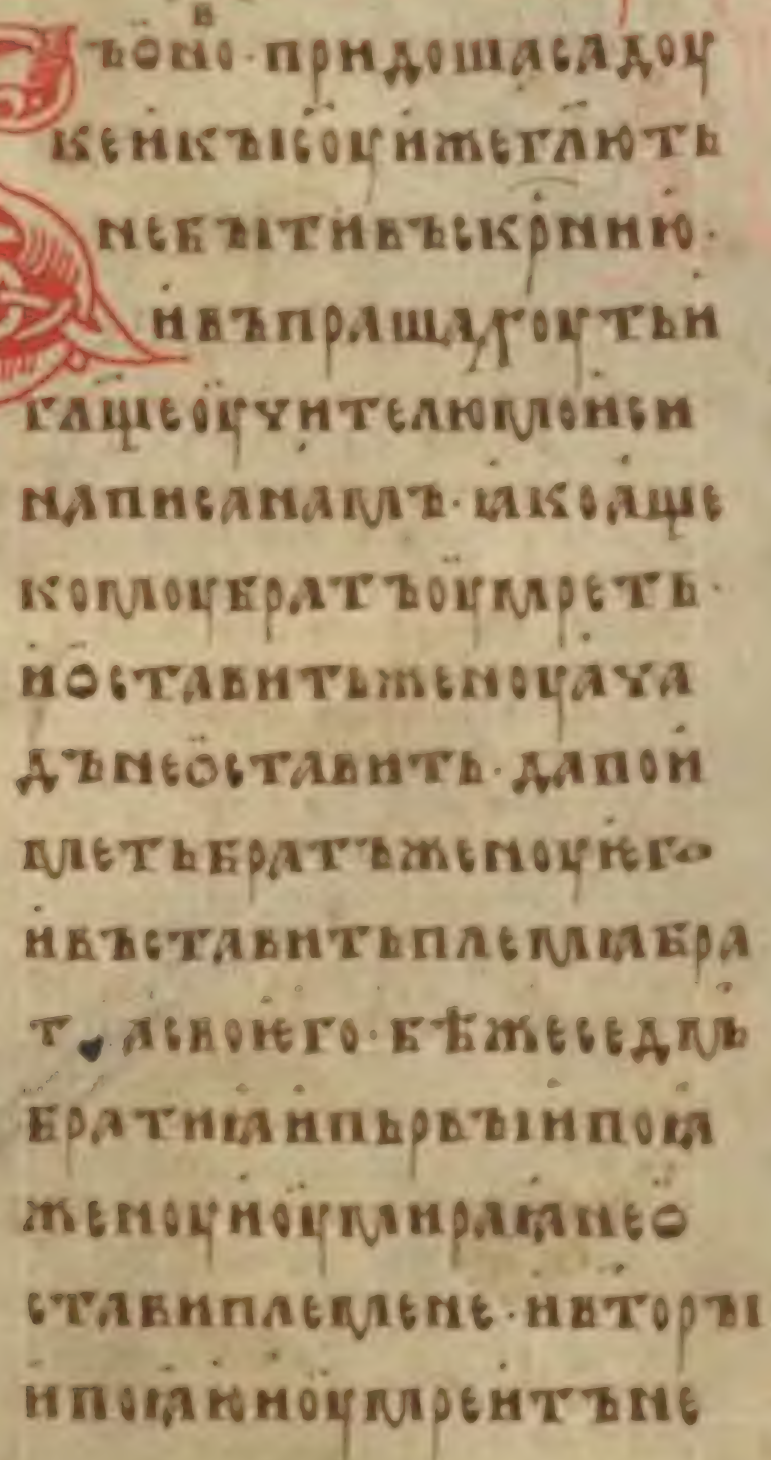 Въ ѡно в҇· придошасадоу
кеикъісⷪ҇уижегл҃ють
небъітивъскр҃нию·
ивъпрашахоутьи
гл҃щеоучителюмоисеи
написанамъ· ꙗкоаще
комоубратъоумреть·
иѡставитьженоуача
дънеѡставить· дапои
млетьбратъженоуѥго
ивъставитьплемꙗбра
т асвоѥго· бѣжеседмь
братиꙗипьрвъіипоꙗ
женоуиоумираꙗнеѡ
ставиплемене· ивторъі
ипоꙗюиоумреитъне